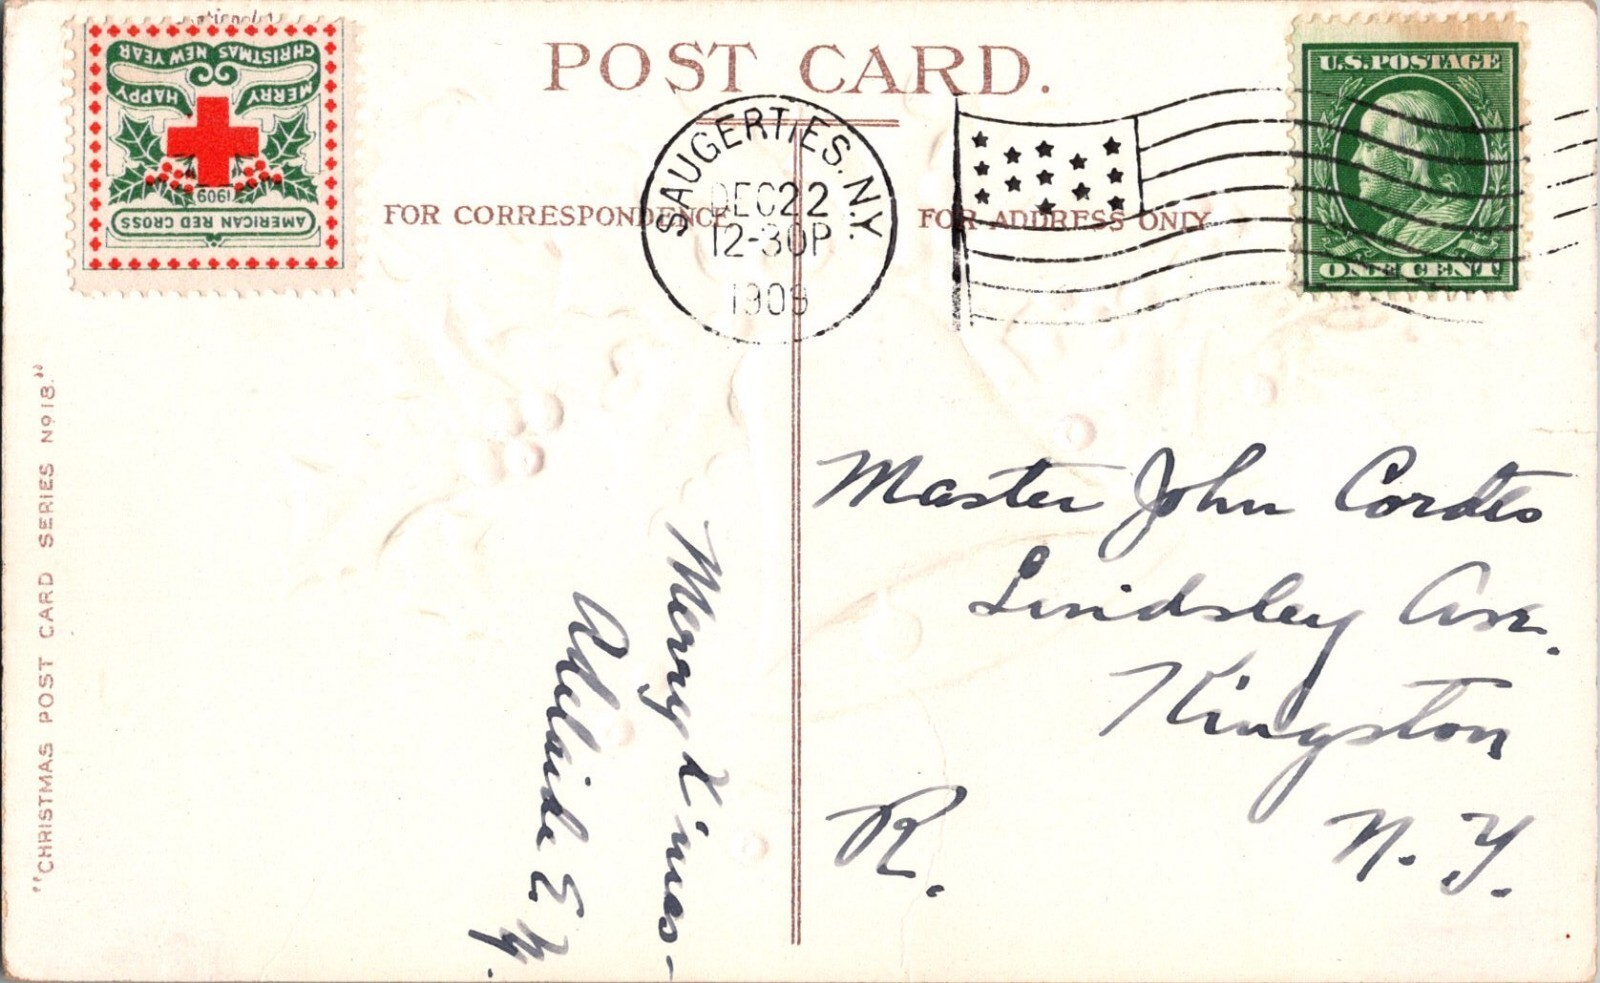 POST CARD.
MERRY
CHRISTMAS
HAPPY
NEW YEAR
1909
AMERICAN RED CROSS
SAUGERTIES, N.Y.
DEC 22
12-30P
1909
U.S. POSTAGE
ONE CENT
FOR CORRESPONDENCE
FOR ADDRESS ONLY
"CHRISTMAS POST CARD SERIES No 18."
Merry X'mas-
Adelaide E.
Master John Cordts
Lindsley Ave.
Kingston
R. N. Y.